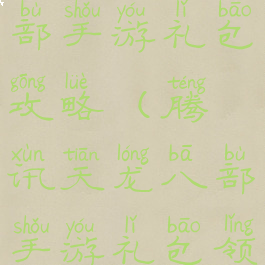 bù shǒu yóu lǐ bāo
部手游礼包
gōng lüè téng
攻略(腾
xùn tiān lóng bā bù
讯天龙八部
shǒu yóu lǐ bāo lǐng
手游礼包领